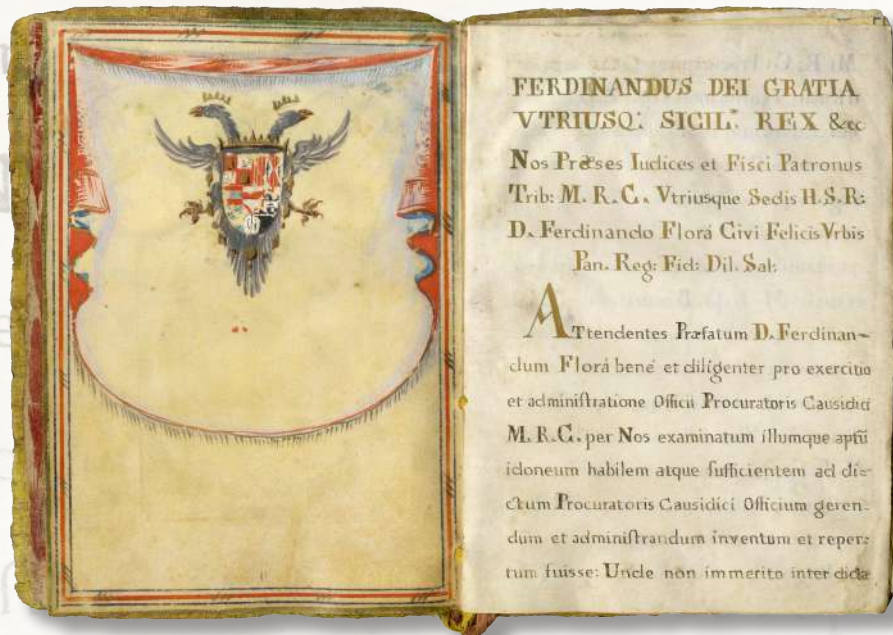 FERDINANDUS DEI GRATIA
VTRIUSQ: SICIL: REX &cc
Nos Præses Iudices et Fisci Patronus
Trib: M. R. C. Vtriusque Sedis H. S. R:
D. Ferdinando Florá Civi Felicis Vrbis
Pan. Reg: Fid: Dil. Sal:
ATtendentes Præfatum D. Ferdinan-
dum Florá bené et diligenter pro exercitio
et adminiſtratione Officii Procuratoris Causidici
M. R. C. per Nos examinatum illumque aptũ
idoneum habilem atque ſufficientem ad di=
ctum Procuratoris Causidici Officium geren=
dum et adminiſtrandum inventum et reper=
tum fuisse: Unde non immerito inter dicta